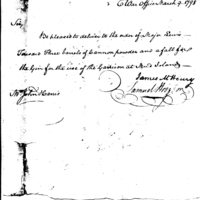 War Office March 9. 1798
Sir,
Be pleased to deliver to the order of Major Lewis
Tousard Three barrels of Cannon powder and a fall for
the Gin for the use of the Garrison at Mud Island
James McHenry
Samuel Hodgdon
Mr John Harris